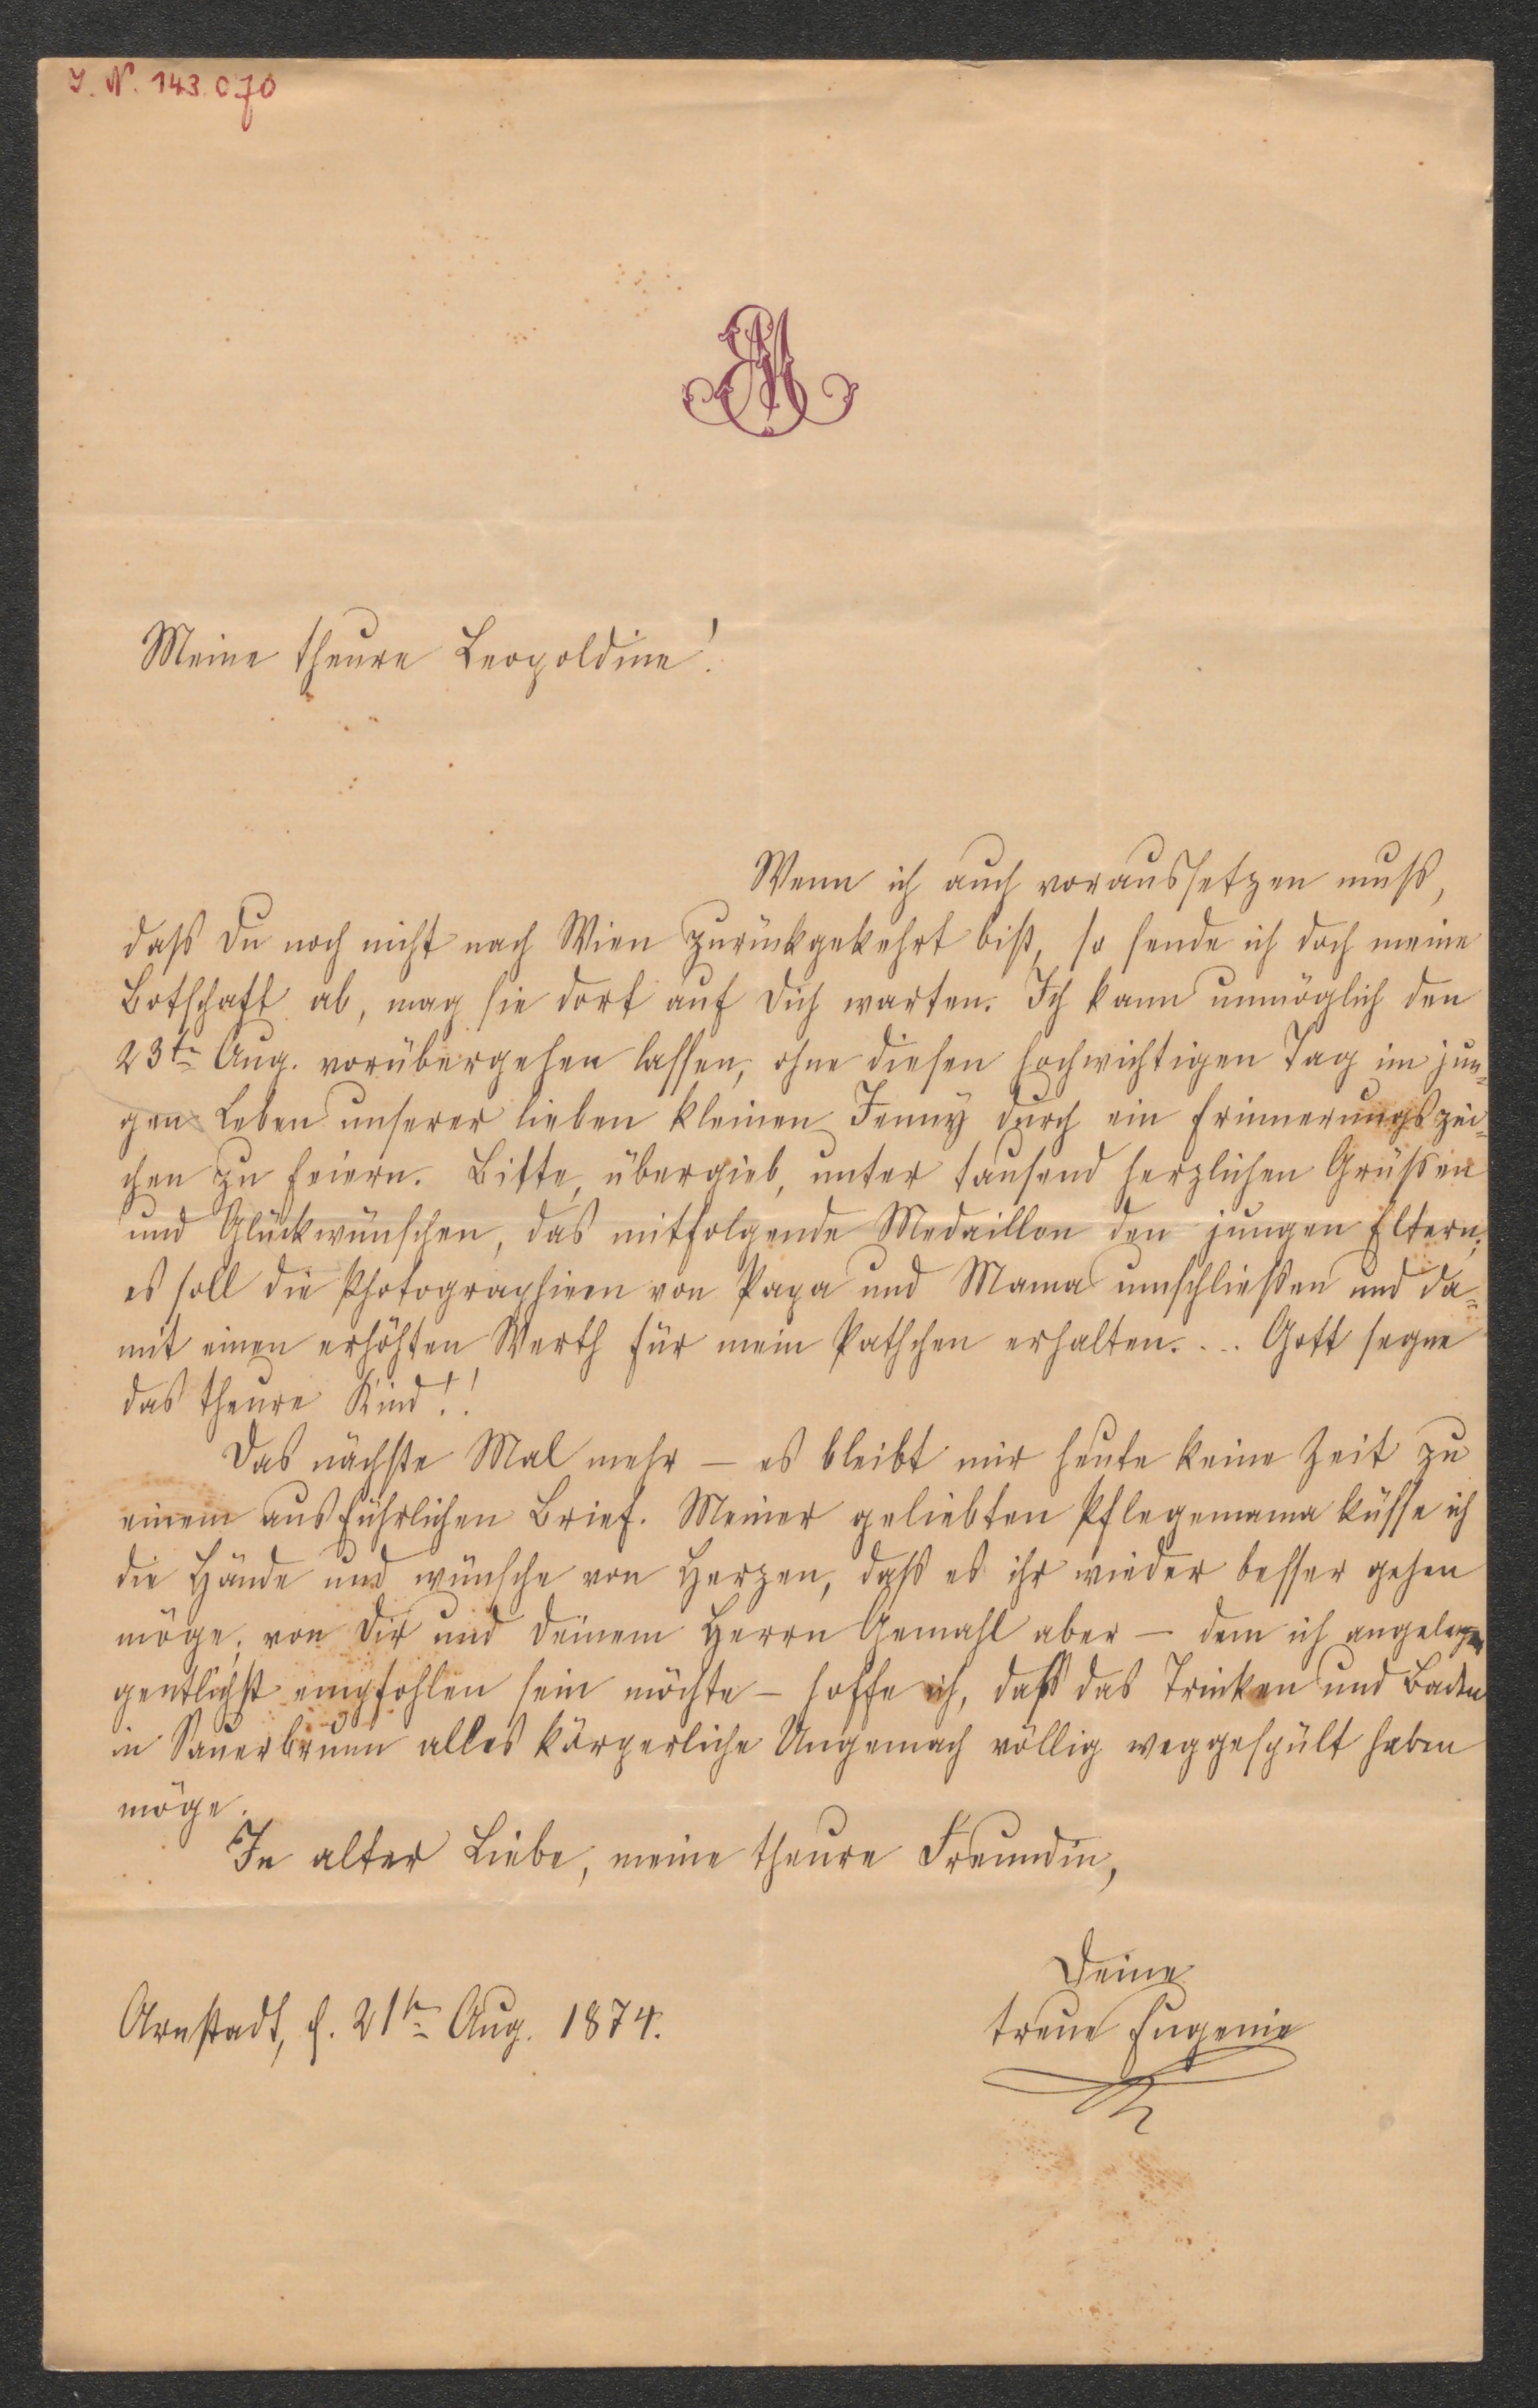 I. N. 143.070
EM
Meine theure Leopoldine!
Wenn ich auch voraussetzen muß,
daß Du noch nicht nach Wien zurückgekehrt bist, so sende ich doch meine
Botschaft ab, mag sie dort auf Dich warten. Ich kann unmöglich den
23ten Aug. vorübergehen lassen, ohne diesen hochwichtigen Tag im jun=
gen Leben unserer lieben kleinen Jenny durch ein Erinnerungszei=
chen zu feiern. Bitte, übergieb, unter tausend herzlichen Grüßen
und Glückwünschen, das mitfolgende Medaillon den jungen Eltern;
es soll die Photographieen von Papa und Mama umschließen und da=
mit einen erhöhten Werth für mein Pathchen erhalten.... Gott segne
das theure Kind!!
Das nächste Mal mehr – es bleibt mir heute keine Zeit zu
einem ausführlichen Brief. Meiner geliebten Pflegemama küsse ich
die Hände und wünsche von Herzen, daß es ihr wieder besser gehen
möge; von Dir und Deinem Herrn Gemahl aber – dem ich angele
gentlichst empfohlen sein möchte – hoffe ich, daß das Trinken und Baden
in Sauerbrunn alles körperliche Ungemach völlig weggespült haben
möge.
In alter Liebe, meine theure Freundin,
Deine
treue Eugenie
Arnstadt, d. 21ten Aug. 1874.